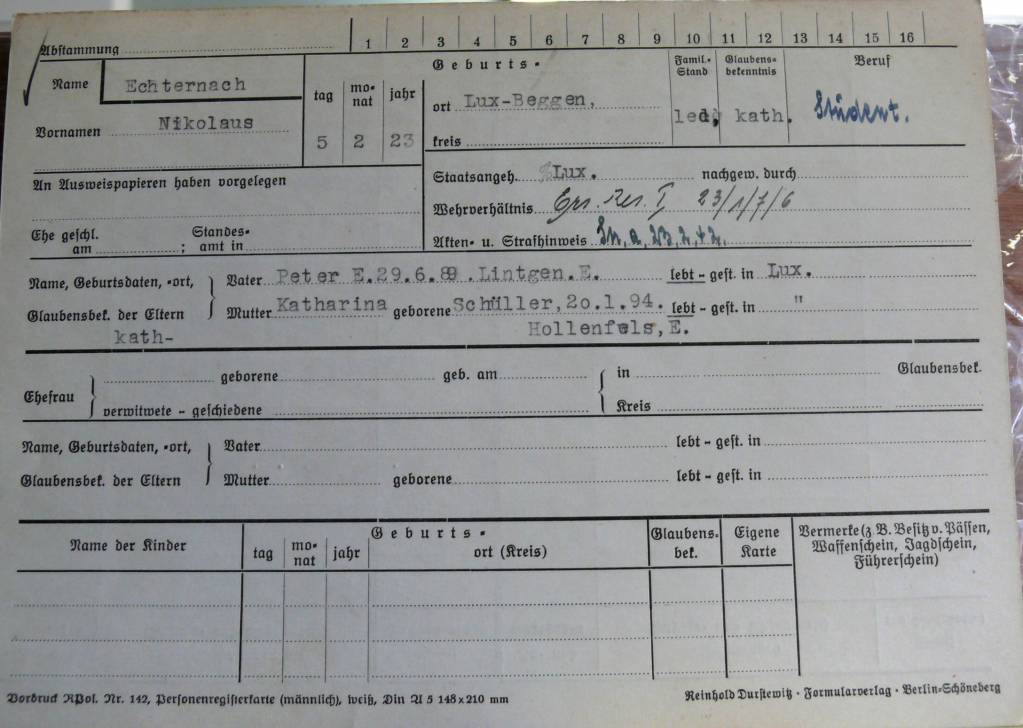 Abstammung 1 2 3 4 5 6 7 8 9 10 11 12 13 14 15 16
Name Echternach
Vornamen Nikolaus
Geburts-
tag monat jahr
5 2 23
ort Lux-Beggen,
kreis
Famil.-Stand
led.
Glaubens-bekenntnis
kath.
Beruf
Student.
An Ausweispapieren haben vorgelegen
Staatsangeh. Lux. nachgew. durch
Wehrverhältnis Ers. Res. I, 23/1/7/6
Ehe geschl. am ; Standes-amt in
Akten- u. Strafhinweis
Name, Geburtsdaten, -ort, Vater Peter E.29.6.89.Lintgen.E. lebt - gest. in Lux.
Glaubensbek. der Eltern Mutter Katharina geborene Schüller,20.1.94. lebt - gest. in "
kath- Hollenfels,E.
Ehefrau geborene geb. am in Glaubensbek.
verwitwete - geschiedene Kreis
Name, Geburtsdaten, -ort, Vater lebt - gest. in
Glaubensbek. der Eltern Mutter geborene lebt - gest. in
Name der Kinder
Geburts-
tag monat jahr ort (Kreis)
Glaubens-bek.
Eigene Karte
Vermerke (z. B. Besitz v. Pässen,
Waffenschein, Jagdschein,
Führerschein)
Vordruck RPol. Nr. 142, Personenregisterkarte (männlich), weiß, Din A 5 148x210 mm
Reinhold Durstewitz · Formularverlag · Berlin-Schöneberg